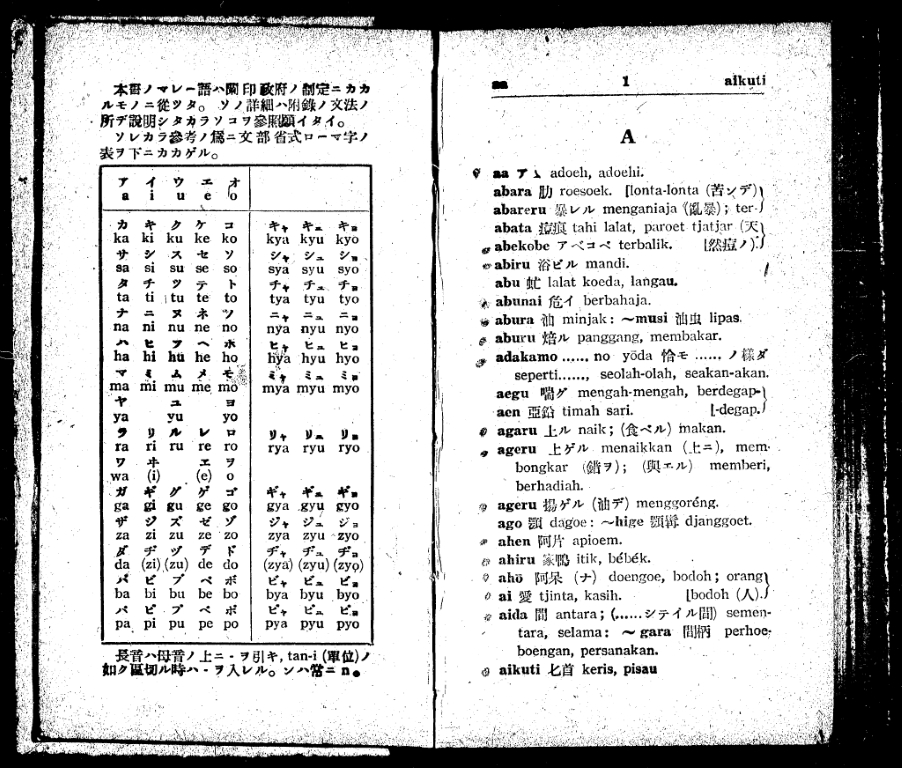 本書ノマレー語ハ蘭印政府ノ制定ニカカ
ルモノニ從ツタ。 ソノ詳細ハ附錄ノ文法ノ
所デ說明シタカラソコヲ參照願イタイ。
ソレカラ參考ノ爲ニ文部省式ローマ字ノ
表ヲ下ニカカゲル。
ア イ ウ エ オ
a i u e o
カ キ ク ケ コ キャ キュ キョ
ka ki ku ke ko kya kyu kyo
サ シ ス セ ソ シャ シュ ショ
sa si su se so sya syu syo
タ チ ツ テ ト チャ チュ チョ
ta ti tu te to tya tyu tyo
ナ ニ ヌ ネ ツ ニャ ニュ ニョ
na ni nu ne no nya nyu nyo
ハ ヒ フ ヘ ホ ヒャ ヒュ ヒョ
ha hi hu he ho hya hyu hyo
マ ミ ム メ モ ミャ ミュ ミョ
ma mi mu me mo mya myu myo
ヤ ユ ヨ
ya yu yo
ラ リ ル レ ロ リャ リュ リョ
ra ri ru re ro rya ryu ryo
ワ ヰ エ ヲ
wa (i) (e) o
ガ ギ グ ゲ ゴ ギャ ギュ ギョ
ga gi gu ge go gya gyu gyo
ザ ジ ズ ゼ ゾ ジャ ジュ ジョ
za zi zu ze zo zya zyu zyo
ダ ヂ ヅ デ ド ヂャ ヂュ ヂョ
da (zi) (zu) de do (zya) (zyu) (zyo)
バ ビ ブ ベ ボ ビャ ビュ ビョ
ba bi bu be bo bya byu byo
パ ピ プ ペ ポ ピャ ピュ ピョ
pa pi pu pe po pya pyu pyo
長音ハ母音ノ上ニ - ヲ引キ, tan-i (單位) ノ
如ク區切ル時ハ - ヲ入レル。ンハ常ニ n。
aa 1 aikuti
A
aa アヽ adoeh, adoehi.
abara 肋 roesoek. [lonta-lonta (苦ンデ)
abareru 暴レル menganiaja (亂暴); ter-
abata 痘痕 tahi lalat, paroet tjatjar (天
abekobe アベコベ terbalik. [然痘ノ).
abiru 浴ビル mandi.
abu 虻 lalat koeda, langau.
abunai 危イ berbahaja.
abura 油 minjak: ~musi 油虫 lipas.
aburu 焙ル panggang, membakar.
adakamo ...... no yōda 恰モ ...... ノ樣ダ
seperti......, seolah-olah, seakan-akan.
aegu 喘グ mengah-mengah, berdegap-
aen 亞鉛 timah sari. [-degap.
agaru 上ル naik; (食ベル) makan.
ageru 上ゲル menaikkan (上ニ), mem-
bongkar (錨ヲ); (與エル) memberi,
berhadiah.
ageru 揚ゲル (油デ) menggoréng.
ago 顎 dagoe: ~hige 顎鬚 djanggoet.
ahen 阿片 apioem.
ahiru 家鴨 itik, bébék.
ahō 阿呆 (ナ) doengoe, bodoh; orang
ai 愛 tjinta, kasih. [bodoh (人).
aida 間 antara; (......シテイル間) semen-
tara, selama: ~ gara 間柄 perhoe-
boengan, persanakan.
aikuti 匕首 keris, pisau